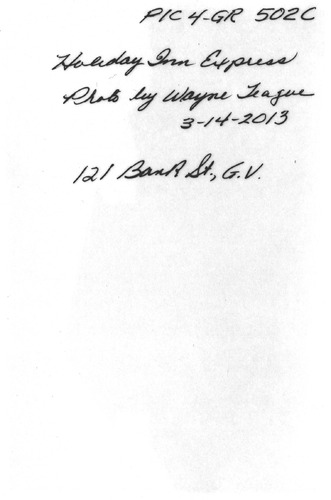 PIC 4-GR 502C
Holiday Inn Express
Photo by Wayne Teague
3-14-2013
121 Bank St., G.V.